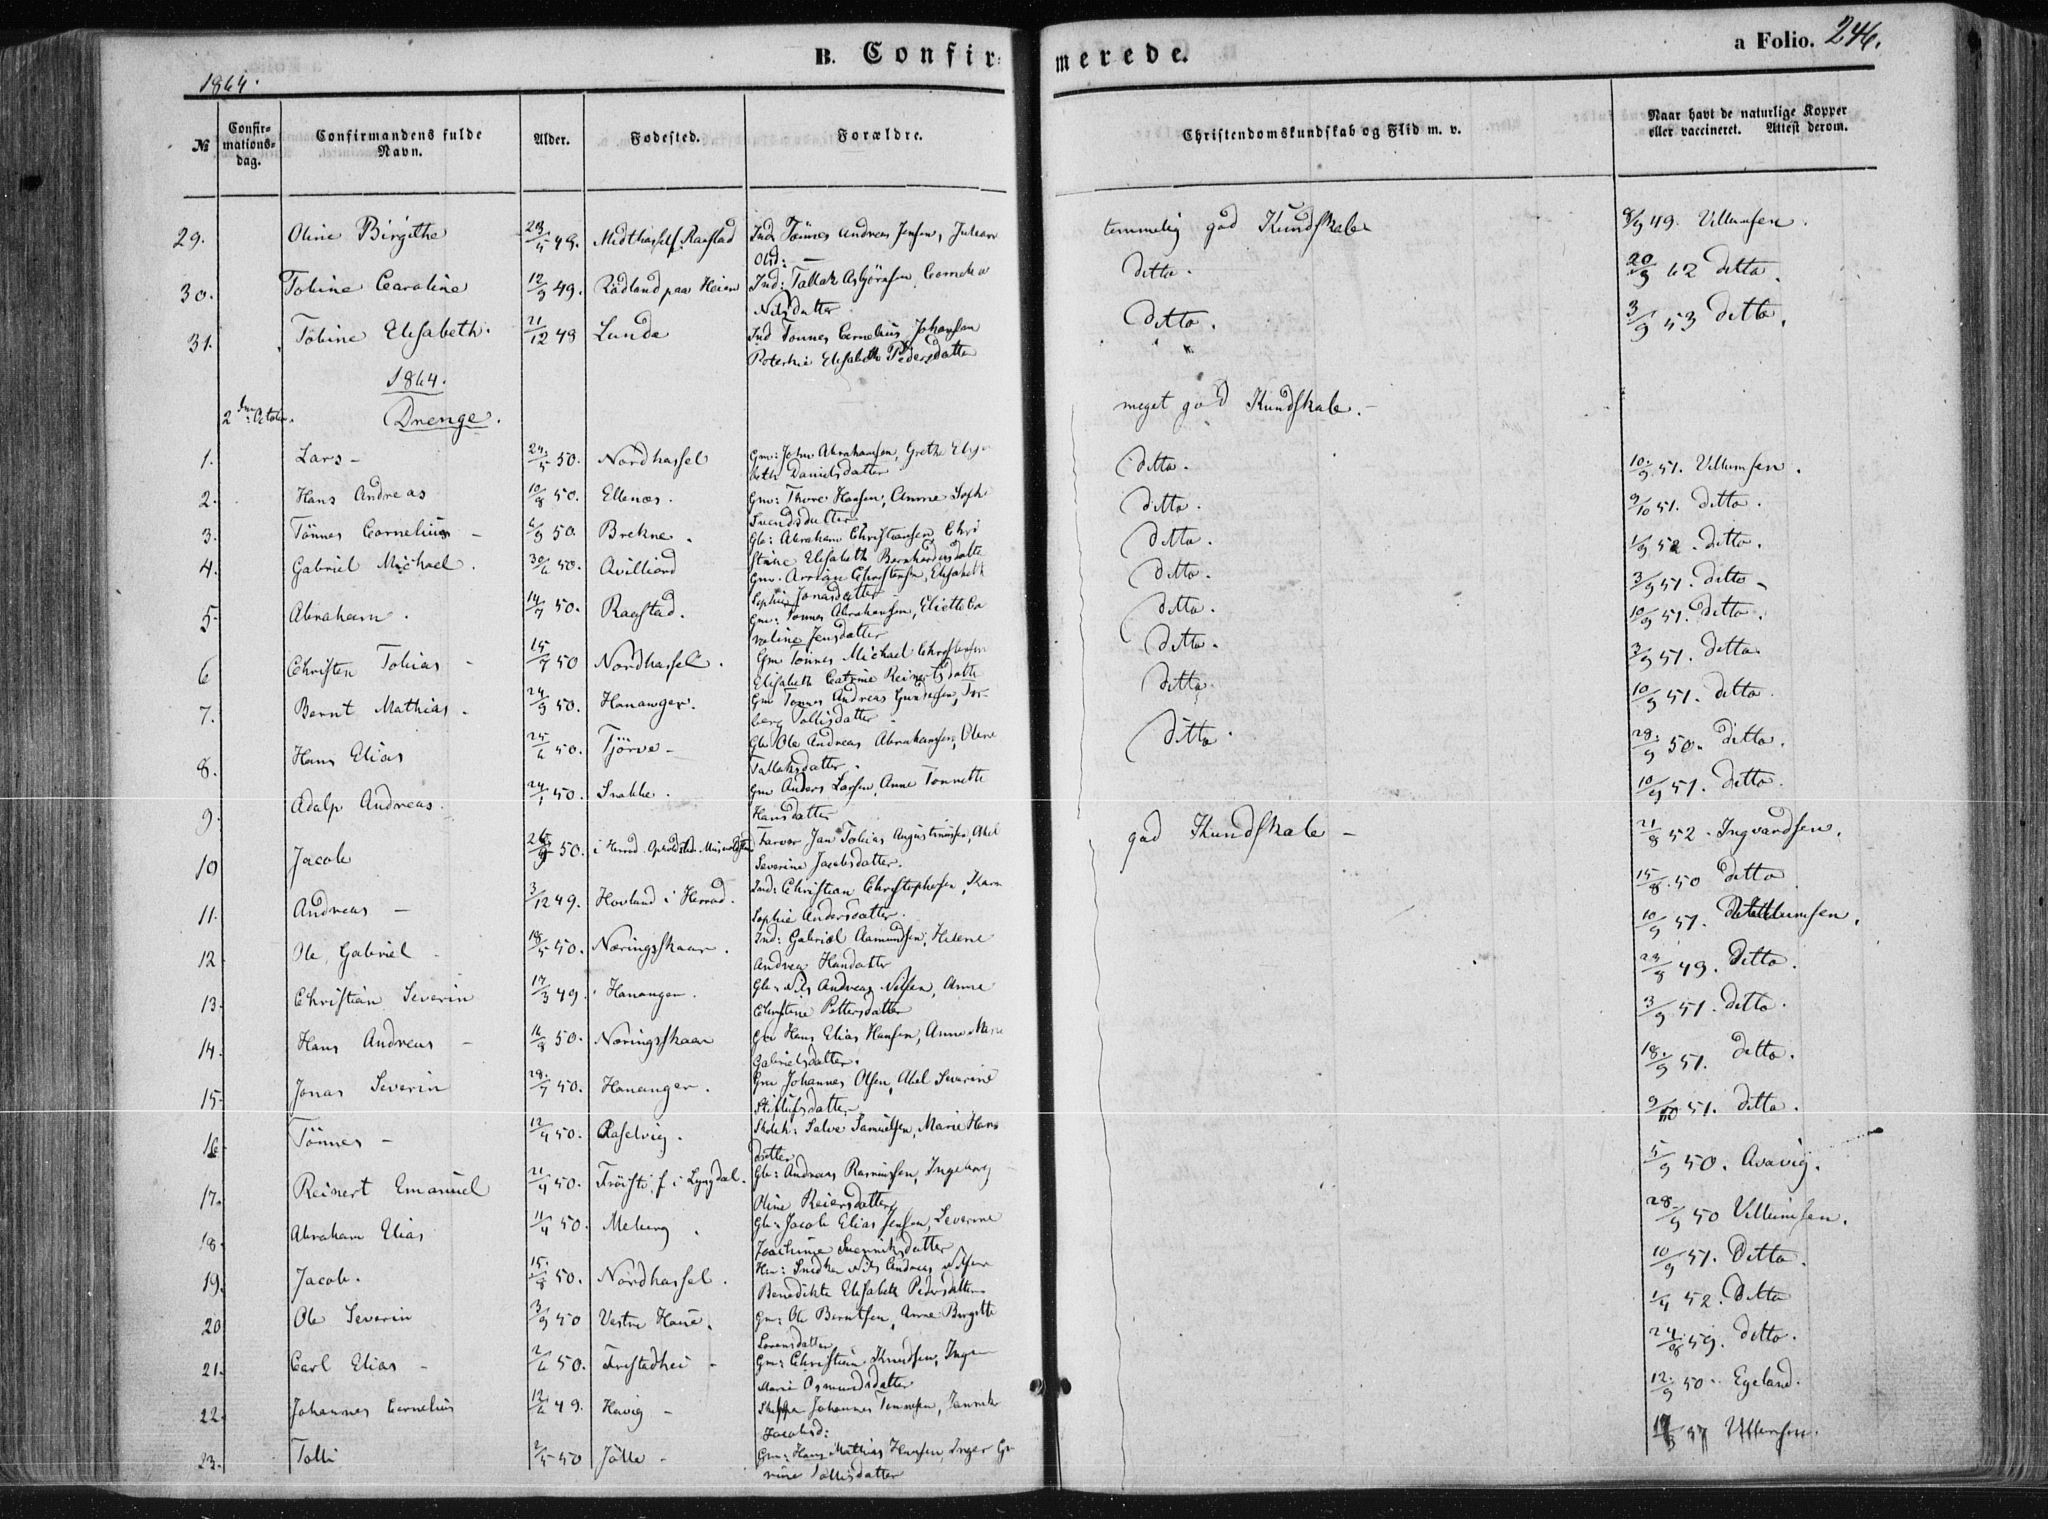 1864.
B. Confirmerede.
a Folio. 246.
№
Confirmationsdag.
Confirmandens fulde Navn.
Alder.
Fødested.
Forældre.
Christendomskundskab og Flid m. v.
Naar havt de naturlige Kopper eller vaccineret. Attest derom.
29. Oline Birgithe Midthassel f. Raastad Ind: Tønnes Andreas Jensen, temmelig god Kundskab 8/9 49. Villumsen.
Olsd: —
30. Tobine Caroline 12/9 49. Rødland paa Heien Ind: Tallak Asbjörnsen, ditto. 20/9 62 ditto.
Nilsdatter
31. Tobine Elisabeth. 21/12 49 Lunde Ind Tonnes Cornelius Johansen Ditto. 3/9 53 ditto.
Elisabeth Pedersdatter
1864.
2den October. Drenge. meget god Kundskab. –
1. Lars – 24/5 50. Nordhassel Gm: John Abrahamsen, Grethe Elisa ditto. 10/9 51. Villumsen.
beth Danielsdatter
2. Hans Andreas 10/8 50. Ellenæs. Gm: Thore Hansen, Anne Soph ditto. 9/10 51. ditto.
Svendsdatter
3. Tönnes Cornelius – 6/9 50. Brekne. Gb: Abraham Christiansen, Chri ditto. 1/9 52. ditto.
stine Elisabeth Bernhardusdatte
4. Gabriel Michael. 30/6 50. Qvilliord Gm. Christensen, Elisabeth ditto. 3/9 51. ditto
Sophie Jonasdatter
5. Abraham. 14/7 50. Raastad. Gm: Tonnes Abrahamsen, ditto. 10/9 51. ditto.
roline Jensdatter
6 Christen Tobias – 15/7 50 Nordhassel. Gm Tönnes Michael Christensen ditto. 3/9 51. ditto.
Elisabeth Catrine Reinertsdatte
7. Bernt Mathias. 24/9 50. Hananger. Gm Tonnes Andreas Gundersen, Tor ditto. 10/9 51. ditto.
berg Tollisdatter
8. Hans Elias 25/6 50. Tjörve – Gb Ole Andreas Abrahamsen, Olene ditto. 28/9 50. ditto.
Tallaksdatter.
9. Adolp Andreas. 24/1 50. Snekke. Gm Anders Larsen, Anne Tonnette 10/9 51. ditto.
Hansdatter
10 Jacob 50. i Herred. Farver Jan Tobias Augustinusen, Abel god Kundskab – 21/8 52. Ingvardsen.
Severine Jacobsdatter.
11. Andreas – 3/12 49. Hovland i Herred. Ind: Christian Christophersen, Karn 15/8 50 ditto
Sophie Andersdatter.
12. Ole Gabriel 18/5 50. Næringskaar. Ind: Gabriel Aamundsen, Helene 10/9 51. Villumsen.
Andrea Handatter
13. Christian Severin 17/3 49. Hananger. Gb: Nils Andreas Nilsen, Anne 23/9 49. Ditto.
Christine Pettersdatter
14. Hans Andreas – 16/8 50. Næringskaar Gb Hans Elias Hansen, Anne Marie 3/9 51. ditto.
Gabrielsdatter.
15. Jonas Severin 28/7 50. Hananger. Gm Johannes Olsen, Abel Severine 18/9 51. ditto.
datter
16. Tönnes – 12/4 50. Raselvig. Skoleh: Salve Samuelsen, Marie Hans 9/10 51. ditto.
datter
17. Reinert Emanuel 21/4 50. f. i Lyngdal. Gb: Andreas Rasmussen, Ingeborg 5/9 50. Aavig.
Oline Reiersdatter
18. Abraham Elias 11/4 50. Meberg. Gb: Jacob Elias Jensen, Severine 28/9 50 Villumsen.
Joachime datter
19. Jacob. 15/8 50. Nordhassel. Snedker Nils Andreas Nilsen 10/9 51. Ditto.
Benedikte Elisabeth Pedersdatter
20 Ole Severin 3/9 50 Vestre Haue. Gm: Ole Berntsen, Anne Birgitte 1/4 52. Ditto
Lorensdatter
21. Carl Elias – 2/6 50. Frestadhei – Gm: Christian Knudsen, Inge 24/8 59. ditto.
Marie Osmundsdatter
22. Johannes Cornelius 12/6 49. Havig – Johannes Tönnesen, 12/9 50. Egeland.
Jacobsd:
23. Tolli 2/5 50 Jölle – Gm: Hans Mathias Hansen, Inger Gu Villumsen.
rine Tollisdatter